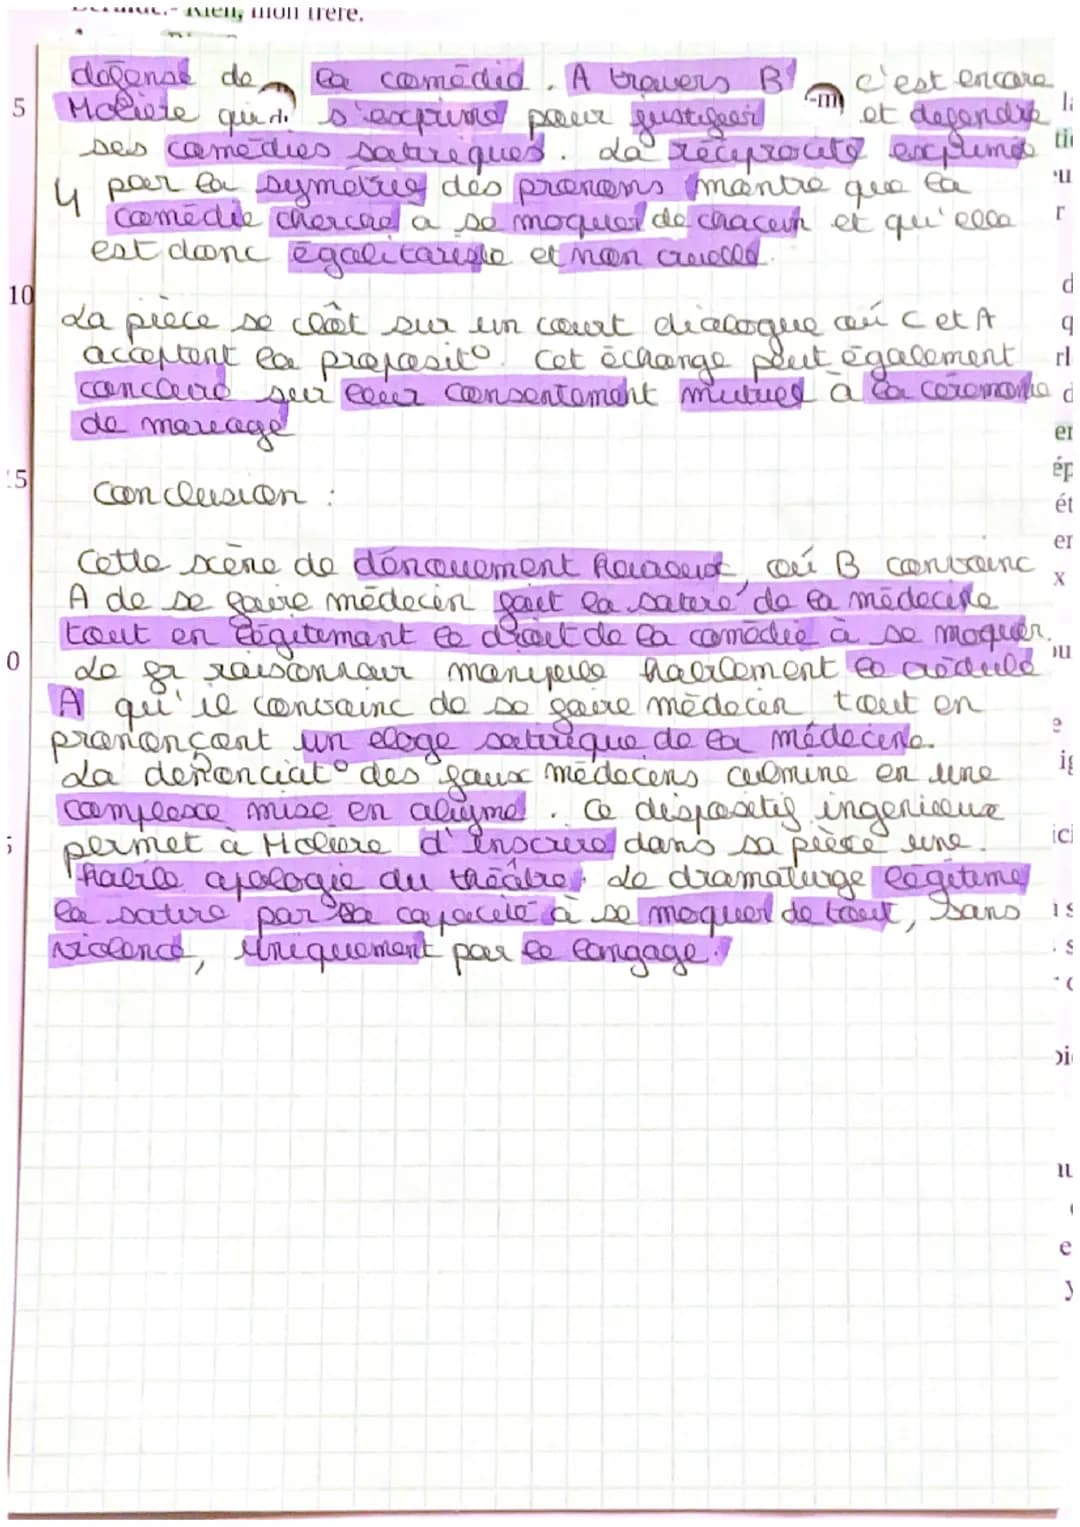 Rien, mon frère.
défense de la comédie. A travers B c'est encore
5 Molière qui s'exprime pour justifier et defendre
ses comédies satireques. La réciprocité exprimée
4 par la symetrie des pronoms montre que la
comédie cherche a se moquer de chacun et qu'elle
est donc égalitariste et non cruelle.
10
La pièce se clôt sur un court dialogue où C et A
acceptent la proposit°. Cet échange peut également
conclure sur leur consentement mutuel à la cérémonie
de mariage
Conclusion :
Cette scène de dénouement heureux, où B convainc
A de se faire médecin fait la satire de la médecine
tout en légitemant le droit de la comédie à se moquer.
Le fr raisonneur manipule habilement le crédule
A qu'il convainc de se faire médecin tout en
prononçant un eloge satirique de la médecine.
La dénonciat° des faux médecins culmine en une
complexe mise en abyme. Ce dispositif ingenieux
permet à Molière d'inscrire dans sa pièce une
habile apologie du théâtre. Le dramaturge légitime
la satire par sa capacité à se moquer de tout, sans
violence, uniquement par le langage.